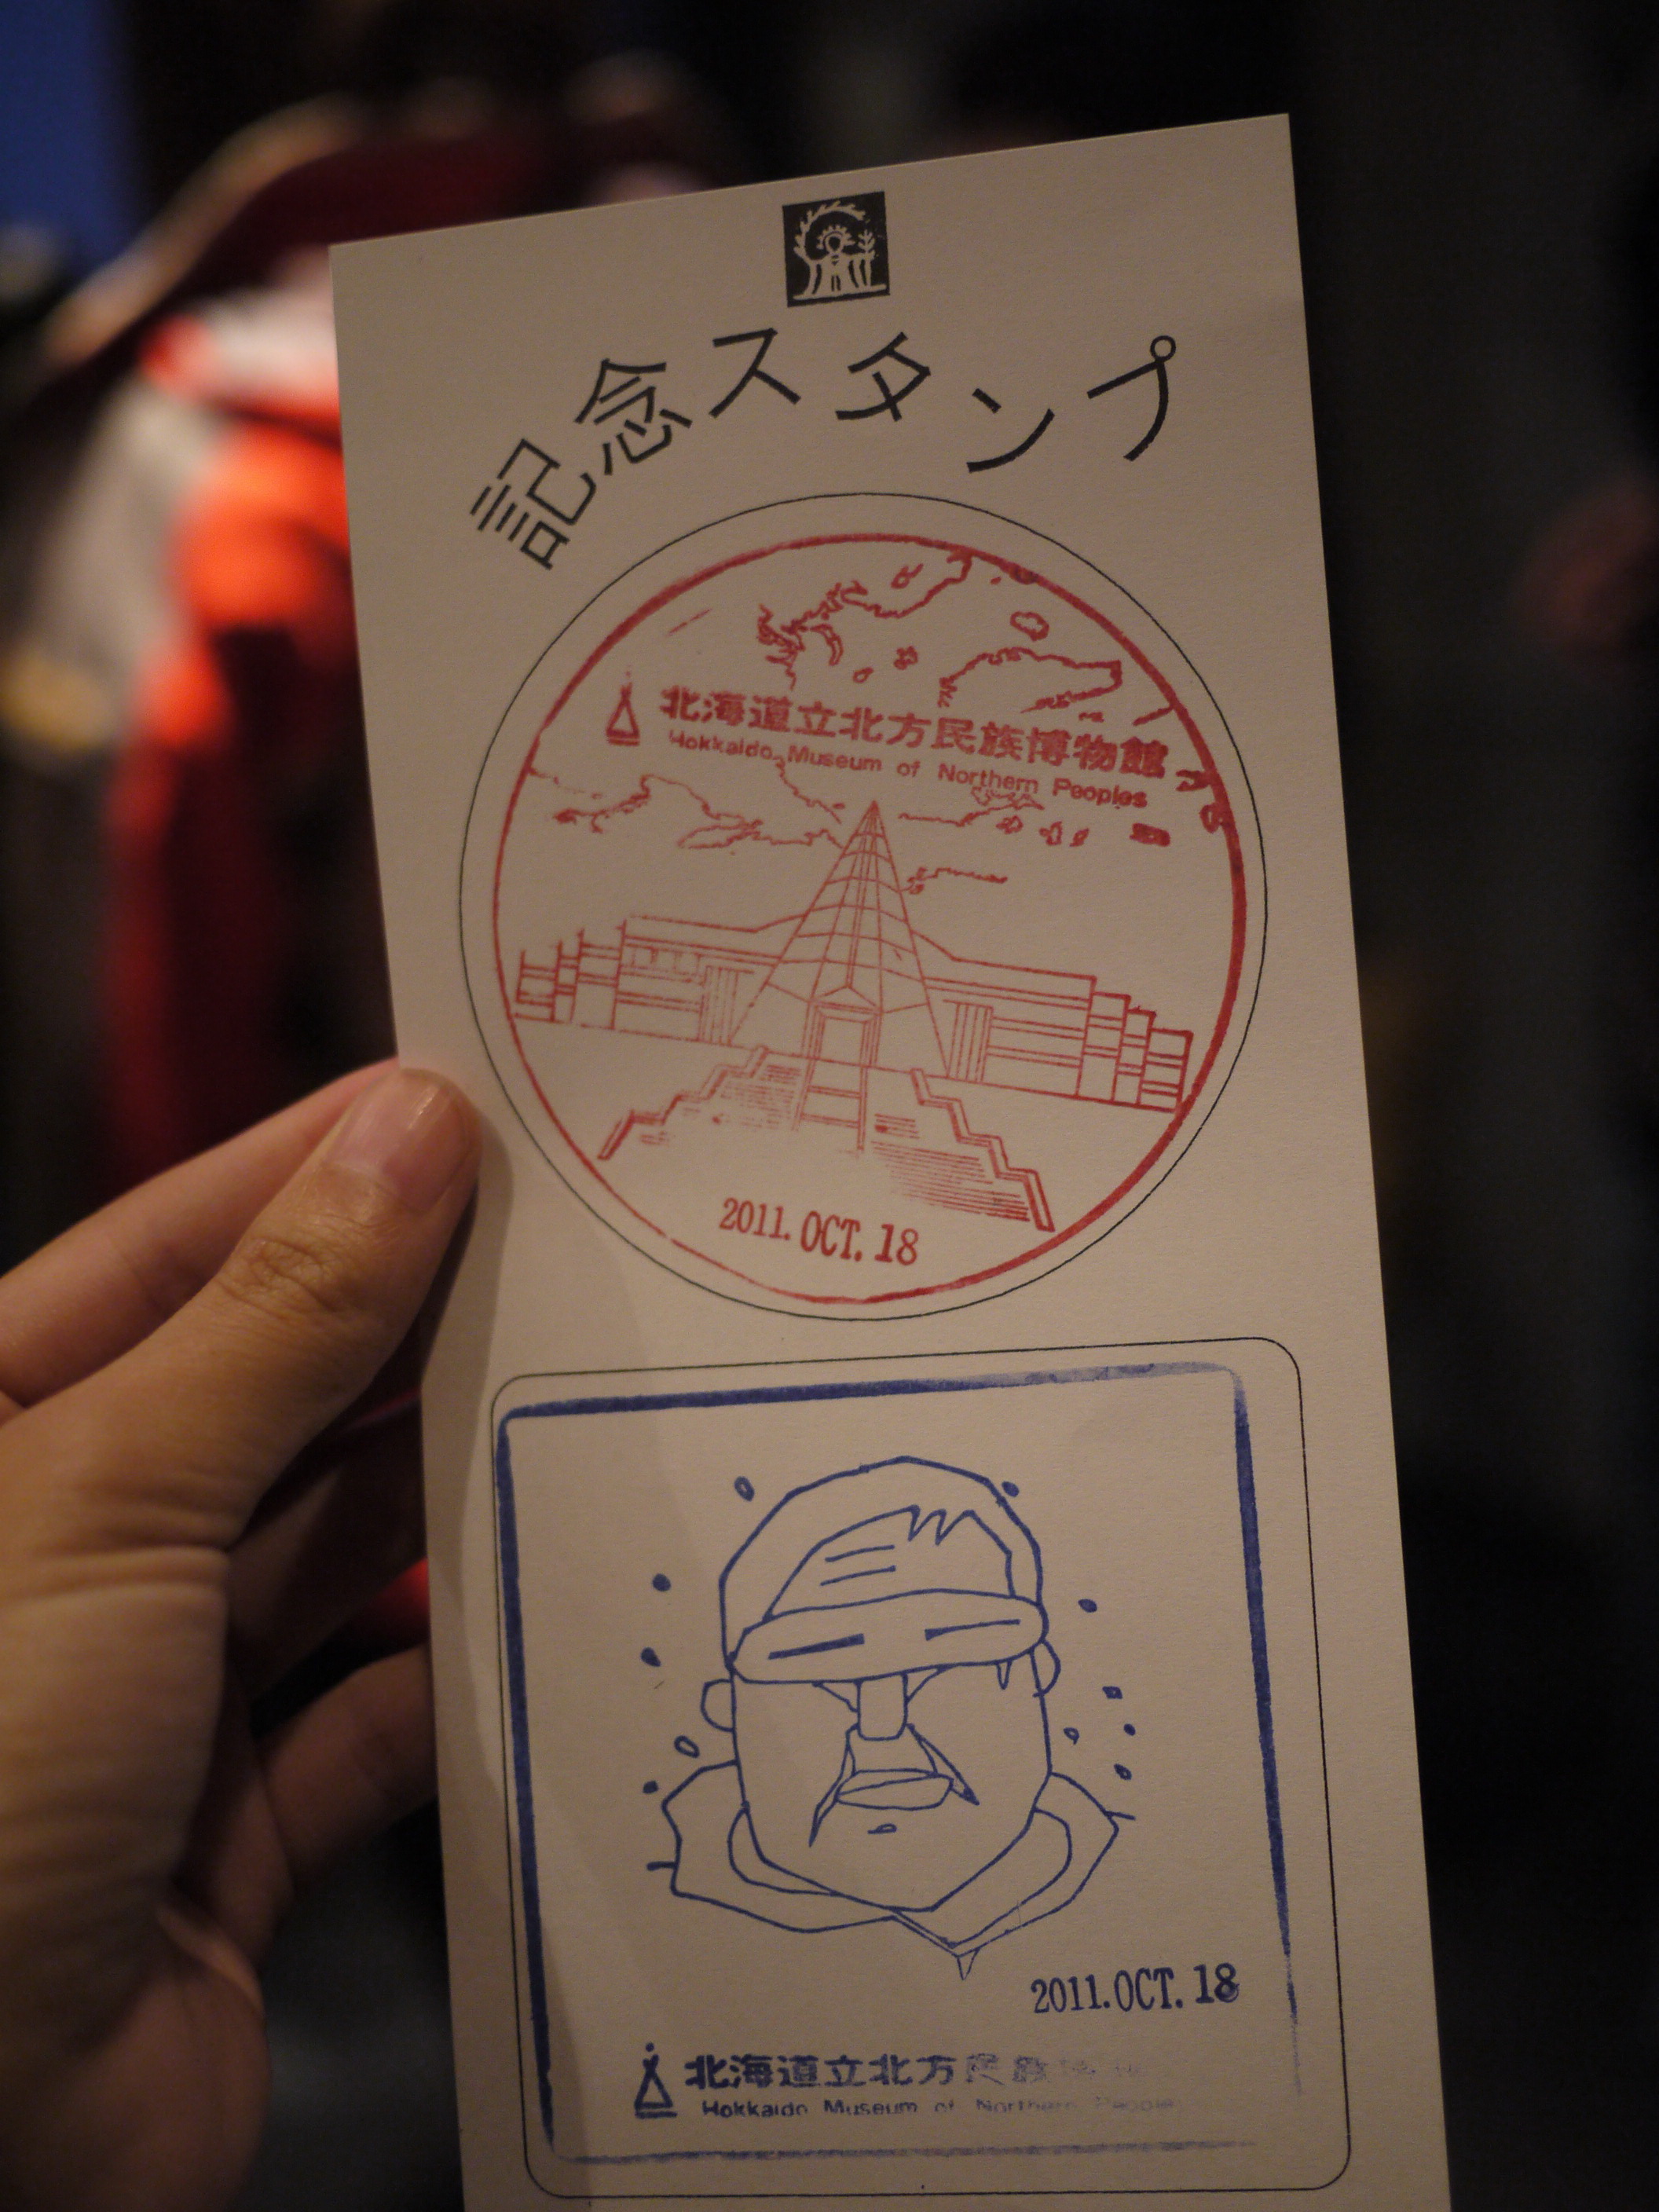 記念スタンプ
北海道立北方民族博物館
Hokkaido Museum of Northern Peoples
2011.OCT.18
2011.OCT.18
北海道立北方民族
Hokkaido Museum of Northern People